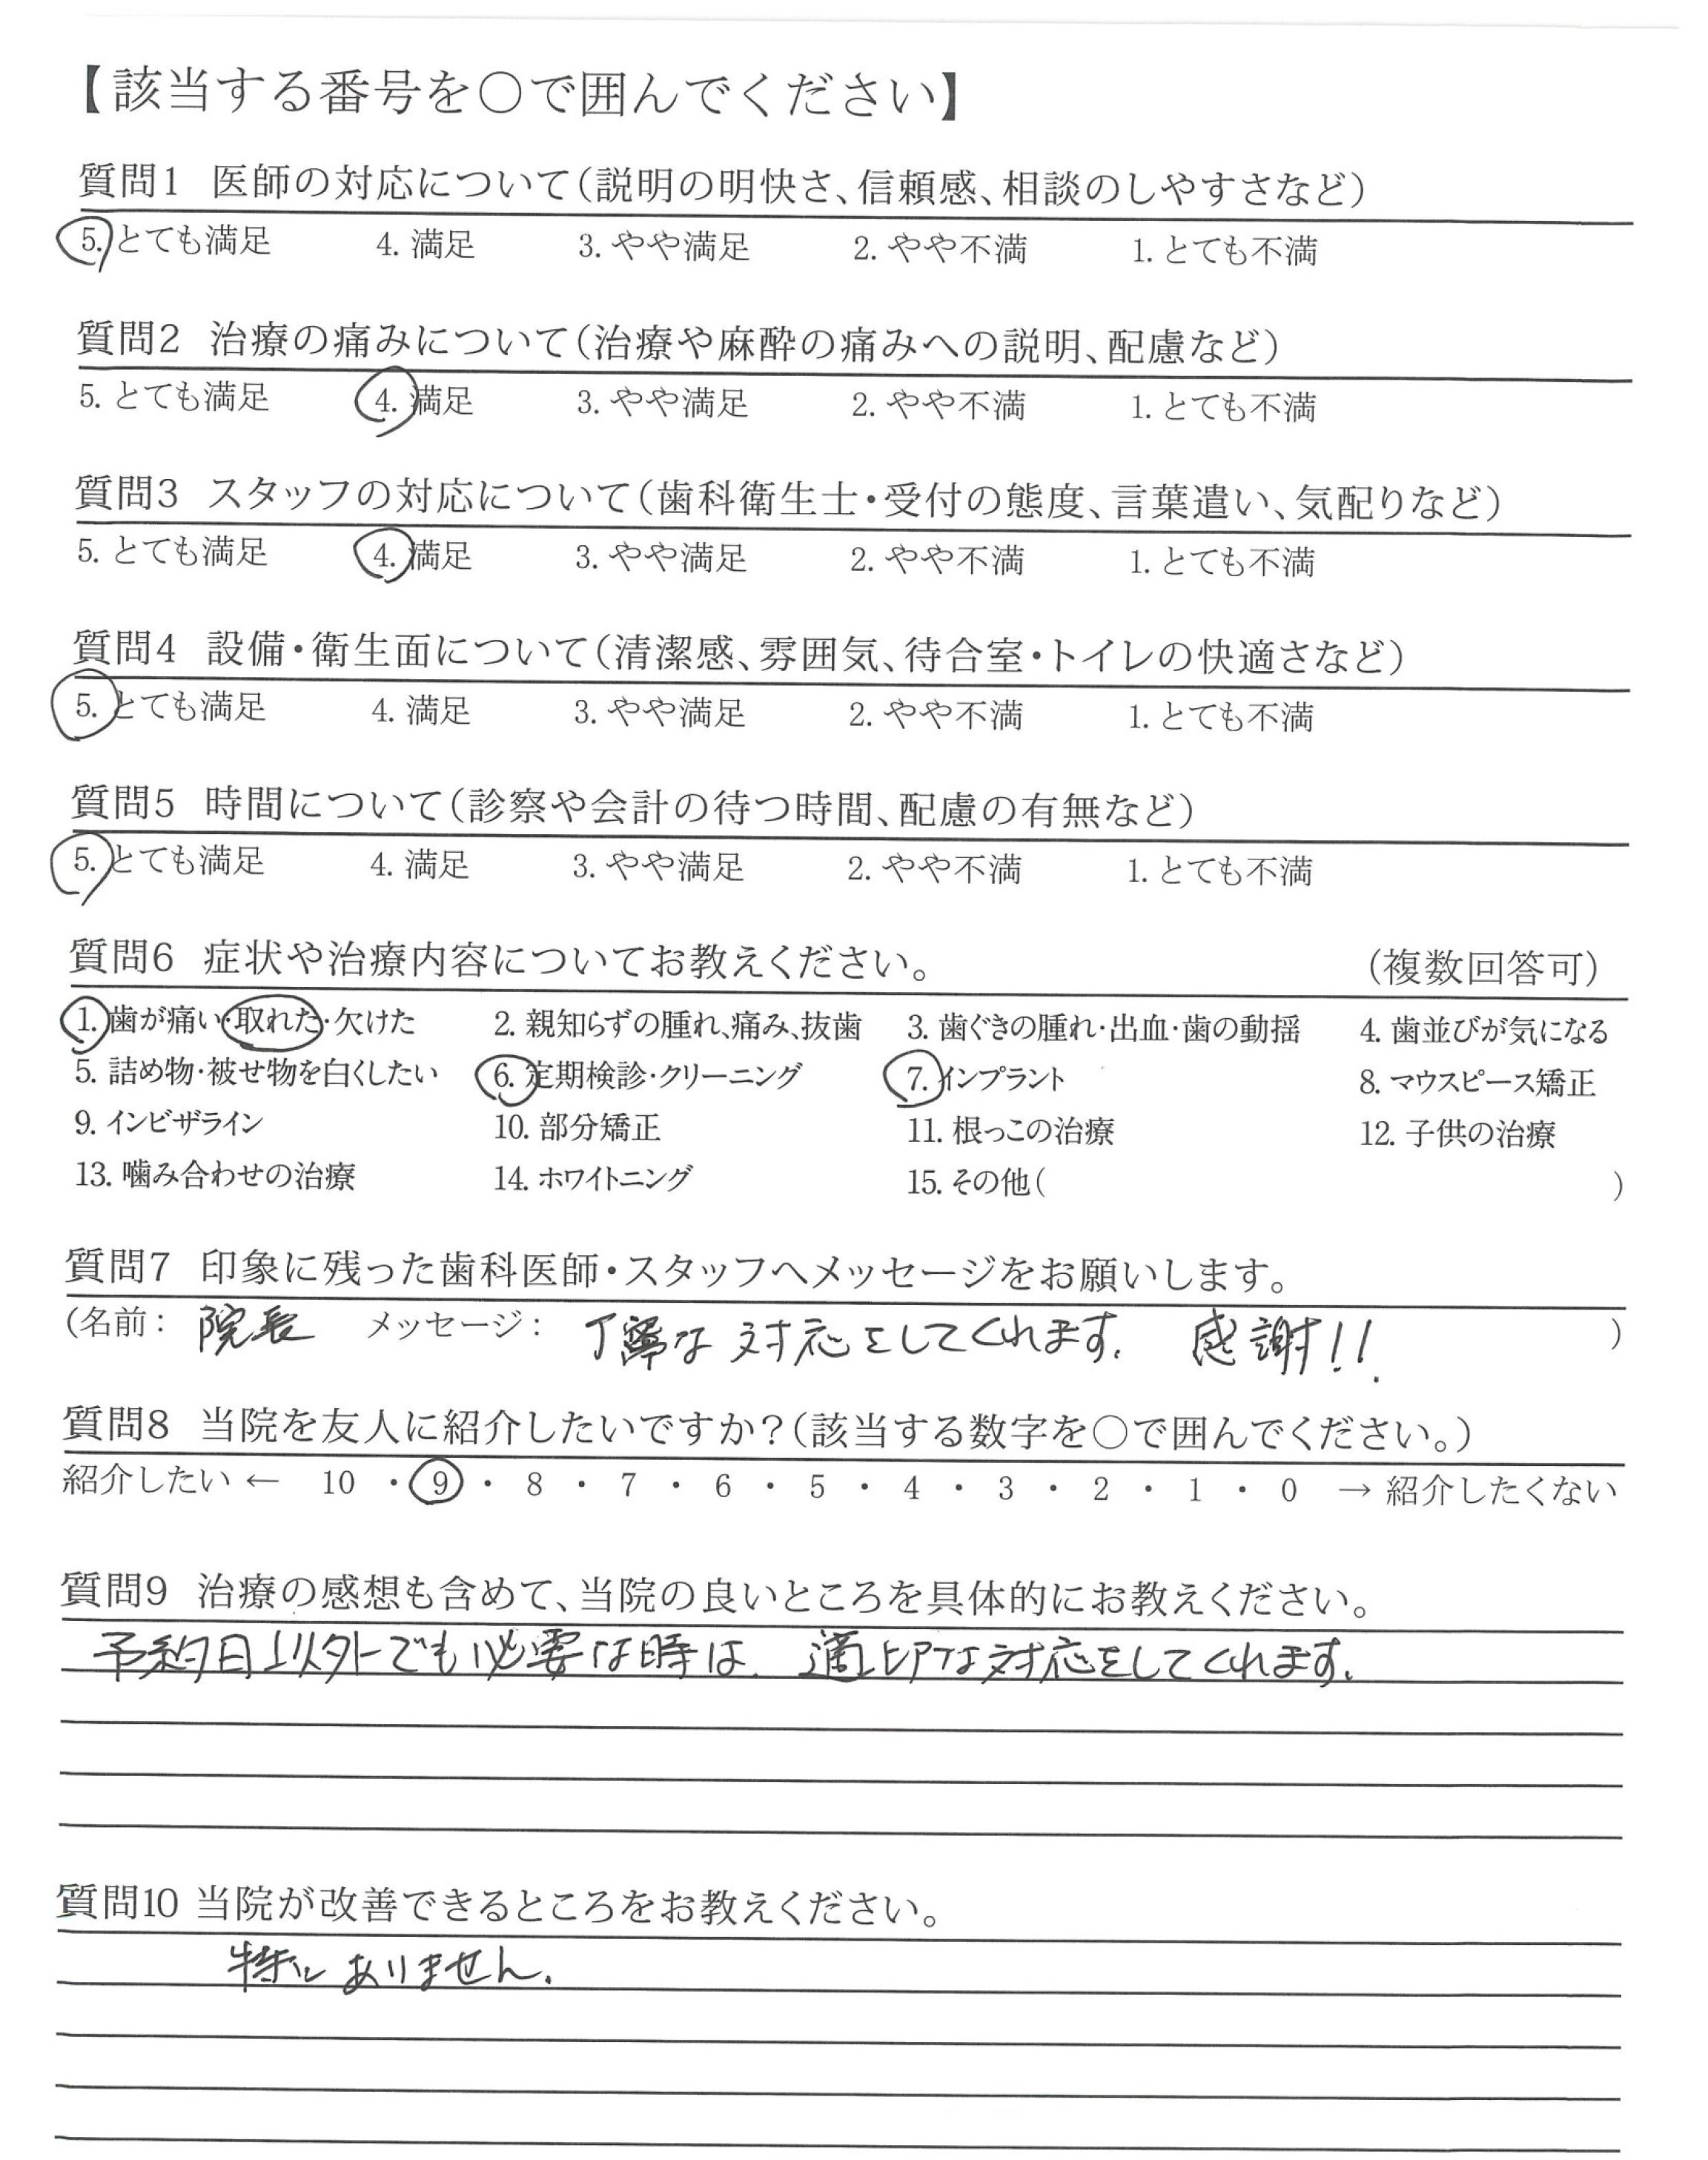 【該当する番号を○で囲んでください】
質問1 医師の対応について(説明の明快さ、信頼感、相談のしやすさなど)
5. とても満足 4. 満足 3. やや満足 2. やや不満 1. とても不満
質問2 治療の痛みについて(治療や麻酔の痛みへの説明、配慮など)
5. とても満足 4. 満足 3. やや満足 2. やや不満 1. とても不満
質問3 スタッフの対応について(歯科衛生士・受付の態度、言葉遣い、気配りなど)
5. とても満足 4. 満足 3. やや満足 2. やや不満 1. とても不満
質問4 設備・衛生面について(清潔感、雰囲気、待合室・トイレの快適さなど)
5. とても満足 4. 満足 3. やや満足 2. やや不満 1. とても不満
質問5 時間について(診察や会計の待つ時間、配慮の有無など)
5. とても満足 4. 満足 3. やや満足 2. やや不満 1. とても不満
質問6 症状や治療内容についてお教えください。 (複数回答可)
1. 歯が痛い・取れた・欠けた 2. 親知らずの腫れ、痛み、抜歯 3. 歯ぐきの腫れ・出血・歯の動揺 4. 歯並びが気になる
5. 詰め物・被せ物を白くしたい 6. 定期検診・クリーニング 7. インプラント 8. マウスピース矯正
9. インビザライン 10. 部分矯正 11. 根っこの治療 12. 子供の治療
13. 噛み合わせの治療 14. ホワイトニング 15. その他( )
質問7 印象に残った歯科医師・スタッフへメッセージをお願いします。
(名前: 院長 メッセージ: 丁寧な対応をしてくれます。 感謝!! )
質問8 当院を友人に紹介したいですか?(該当する数字を○で囲んでください。)
紹介したい ← 10 ・ 9 ・ 8 ・ 7 ・ 6 ・ 5 ・ 4 ・ 3 ・ 2 ・ 1 ・ 0 → 紹介したくない
質問9 治療の感想も含めて、当院の良いところを具体的にお教えください。
予約日以外でも必要な時は、適切な対応をしてくれます。
質問10 当院が改善できるところをお教えください。
特に ありません。